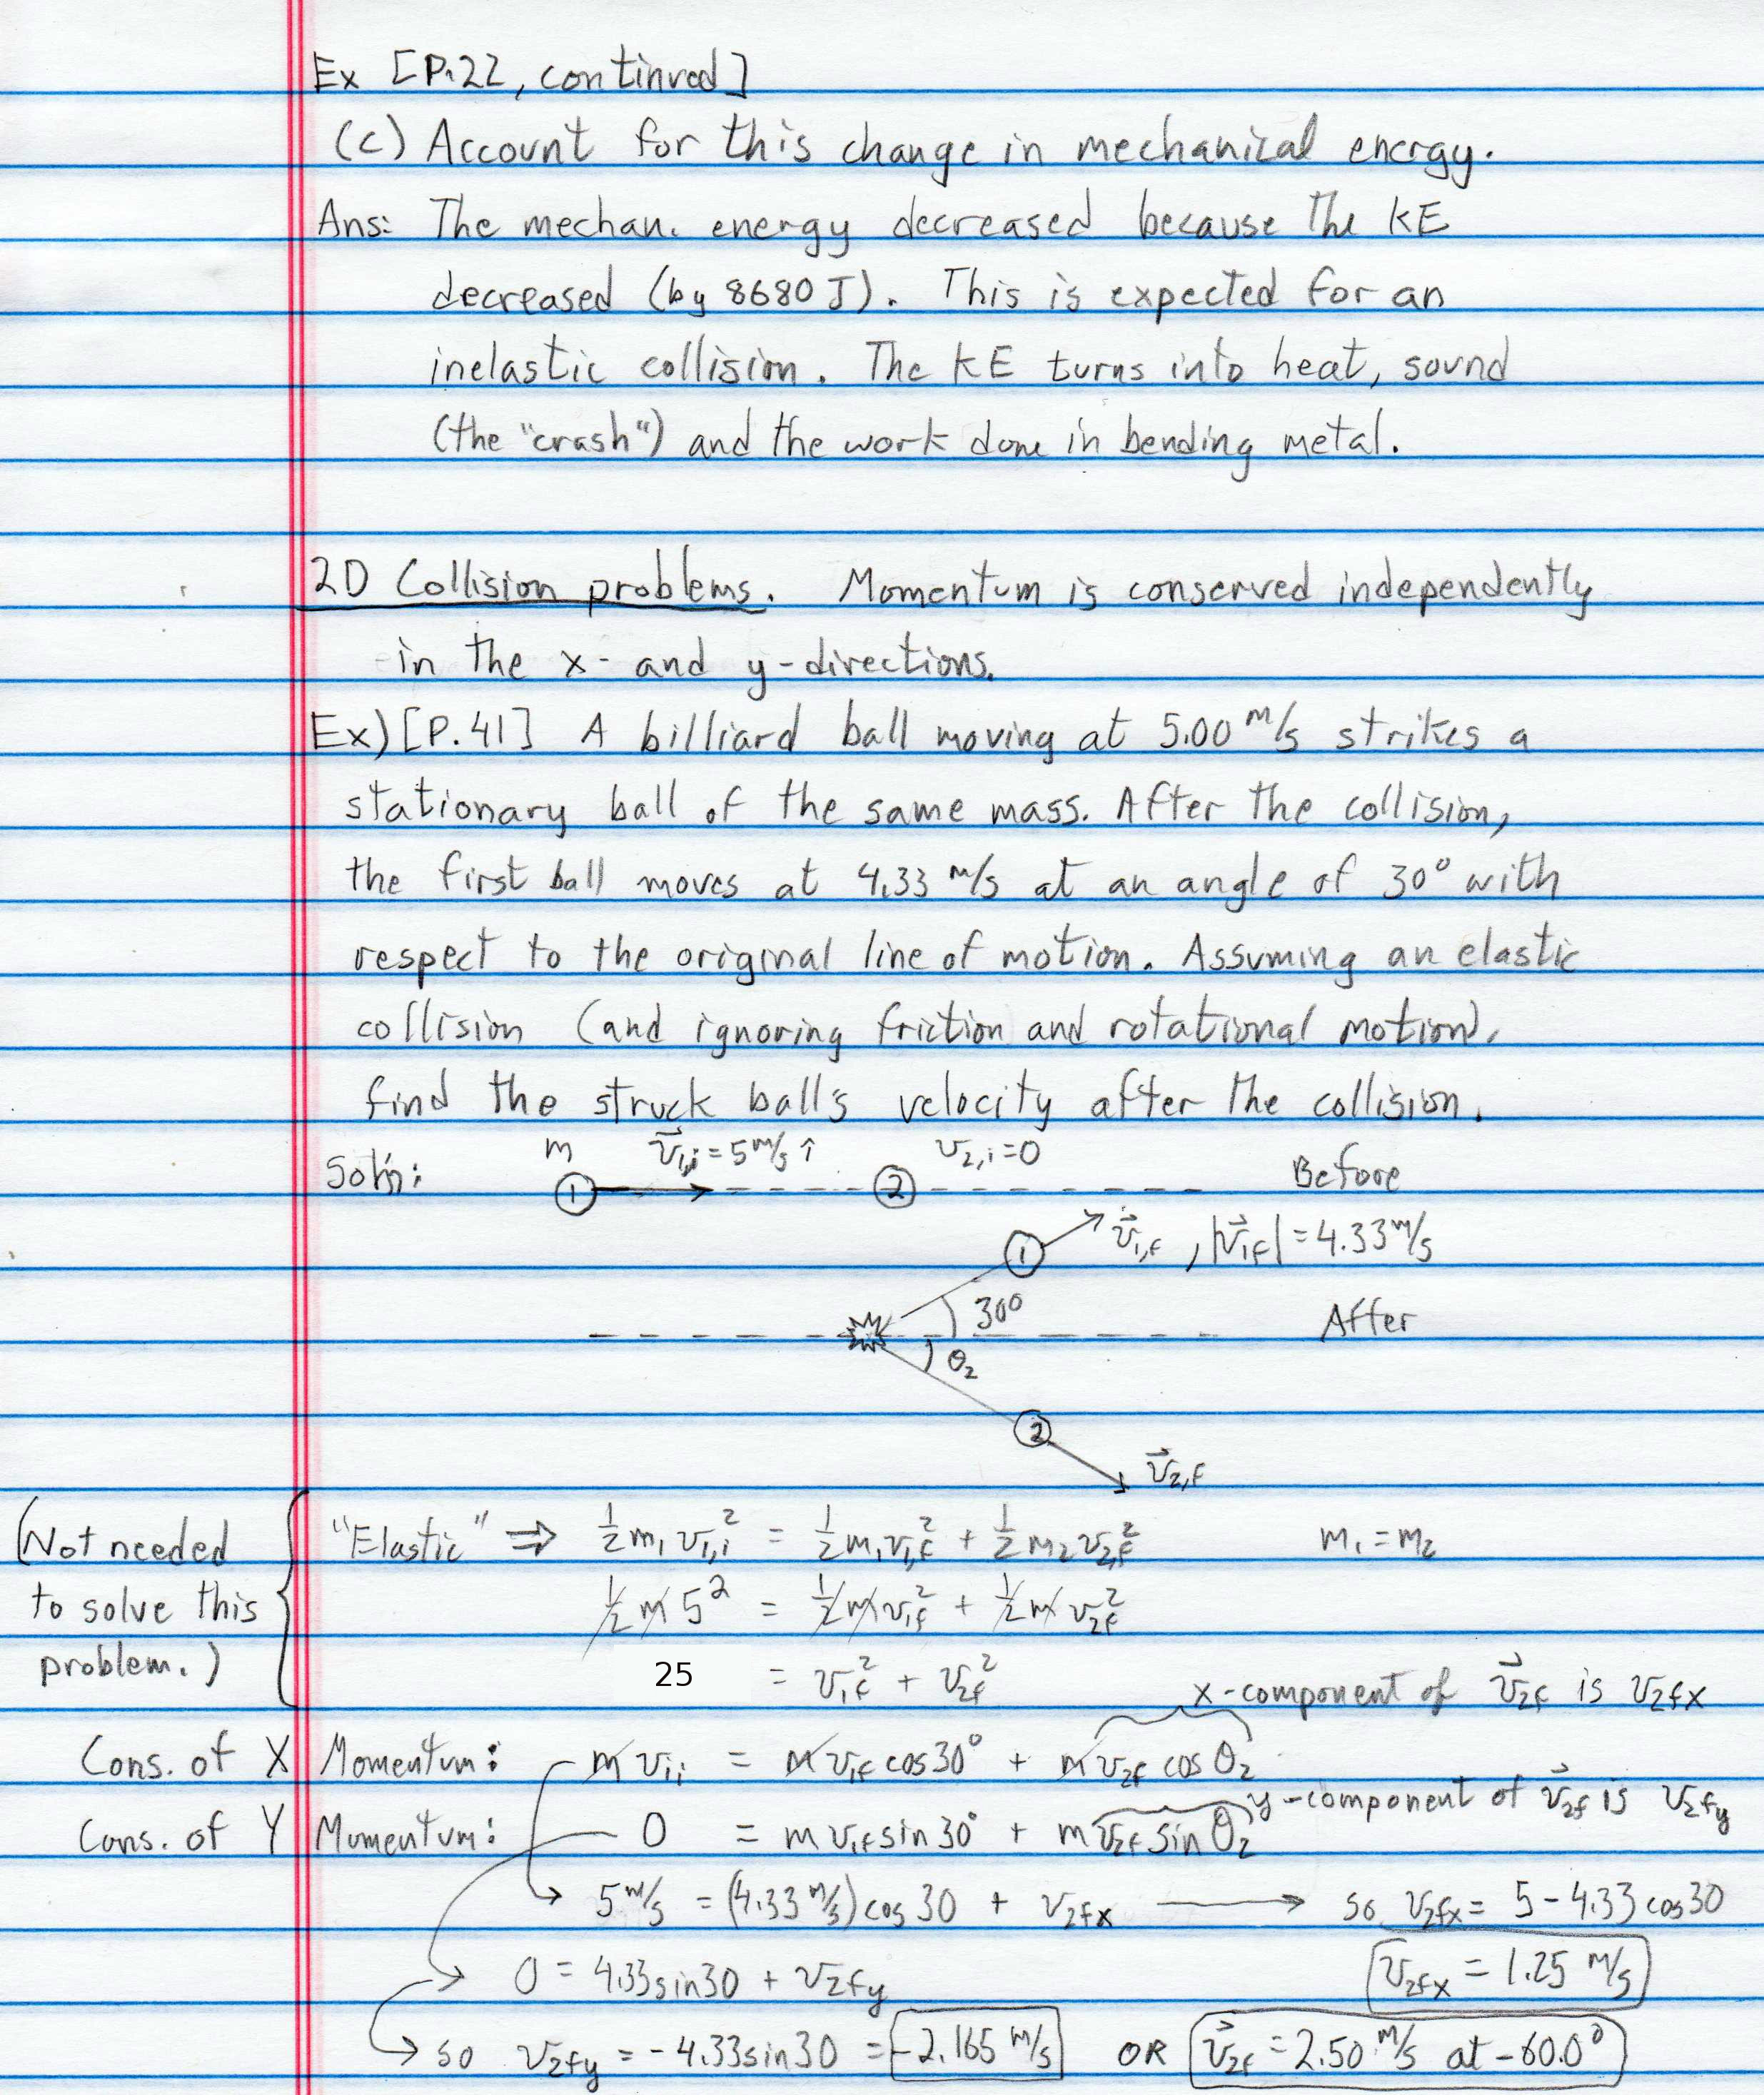 Ex [P.22, continued]
(c) Account for this change in mechanical energy.
Ans: The mechan. energy decreased because the KE
decreased (by 8680 J). This is expected for an
inelastic collision. The KE turns into heat, sound
(the "crash") and the work done in bending metal.
2D Collision problems. Momentum is conserved independently
in the x- and y-directions.
Ex) [P.41] A billiard ball moving at 5.00 m/s strikes a
stationary ball of the same mass. After the collision,
the first ball moves at 4.33 m/s at an angle of 30° with
respect to the original line of motion. Assuming an elastic
collision (and ignoring friction and rotational motion),
find the struck ball's velocity after the collision.
Sol'n: m v⃗₁,ᵢ = 5 m/s î v₂,ᵢ = 0
① ② Before
① v⃗₁,f , |v⃗₁f| = 4.33 m/s
30° After
θ₂
②
v⃗₂,f
(Not needed to solve this problem.)
"Elastic" ⇒ ½ m₁ v₁,ᵢ² = ½ m₁ v₁,f² + ½ m₂ v₂,f² m₁ = m₂
½ m 5² = ½ m v₁f² + ½ m v₂f²
25 = v₁f² + v₂f²
x-component of v⃗₂f is v₂fx
Cons. of X Momentum: m v₁ᵢ = m v₁f cos 30° + m v₂f cos θ₂
y-component of v⃗₂f is v₂fy
Cons. of Y Momentum: 0 = m v₁f sin 30° + m v₂f sin θ₂
5 m/s = (4.33 m/s) cos 30 + v₂fx → so v₂fx = 5 - 4.33 cos 30
v₂fx = 1.25 m/s
0 = 4.33 sin 30 + v₂fy
so v₂fy = -4.33 sin 30 = -2.165 m/s OR v⃗₂f = 2.50 m/s at -60.0°